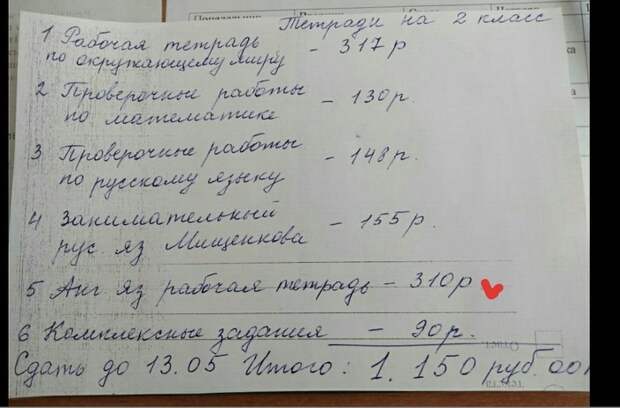 Тетради на 2 класс
1 Рабочая тетрадь
по окружающему миру – 317р
2 Проверочные работы
по математике – 130р.
3 Проверочные работы
по русскому языку – 148р.
4 Занимательный
рус. яз Мищенкова – 155р.
5 Анг яз рабочая тетрадь – 310р
6 Комплексные задания – 90р.
Сдать до 13.05 Итого: 1.150 руб.00